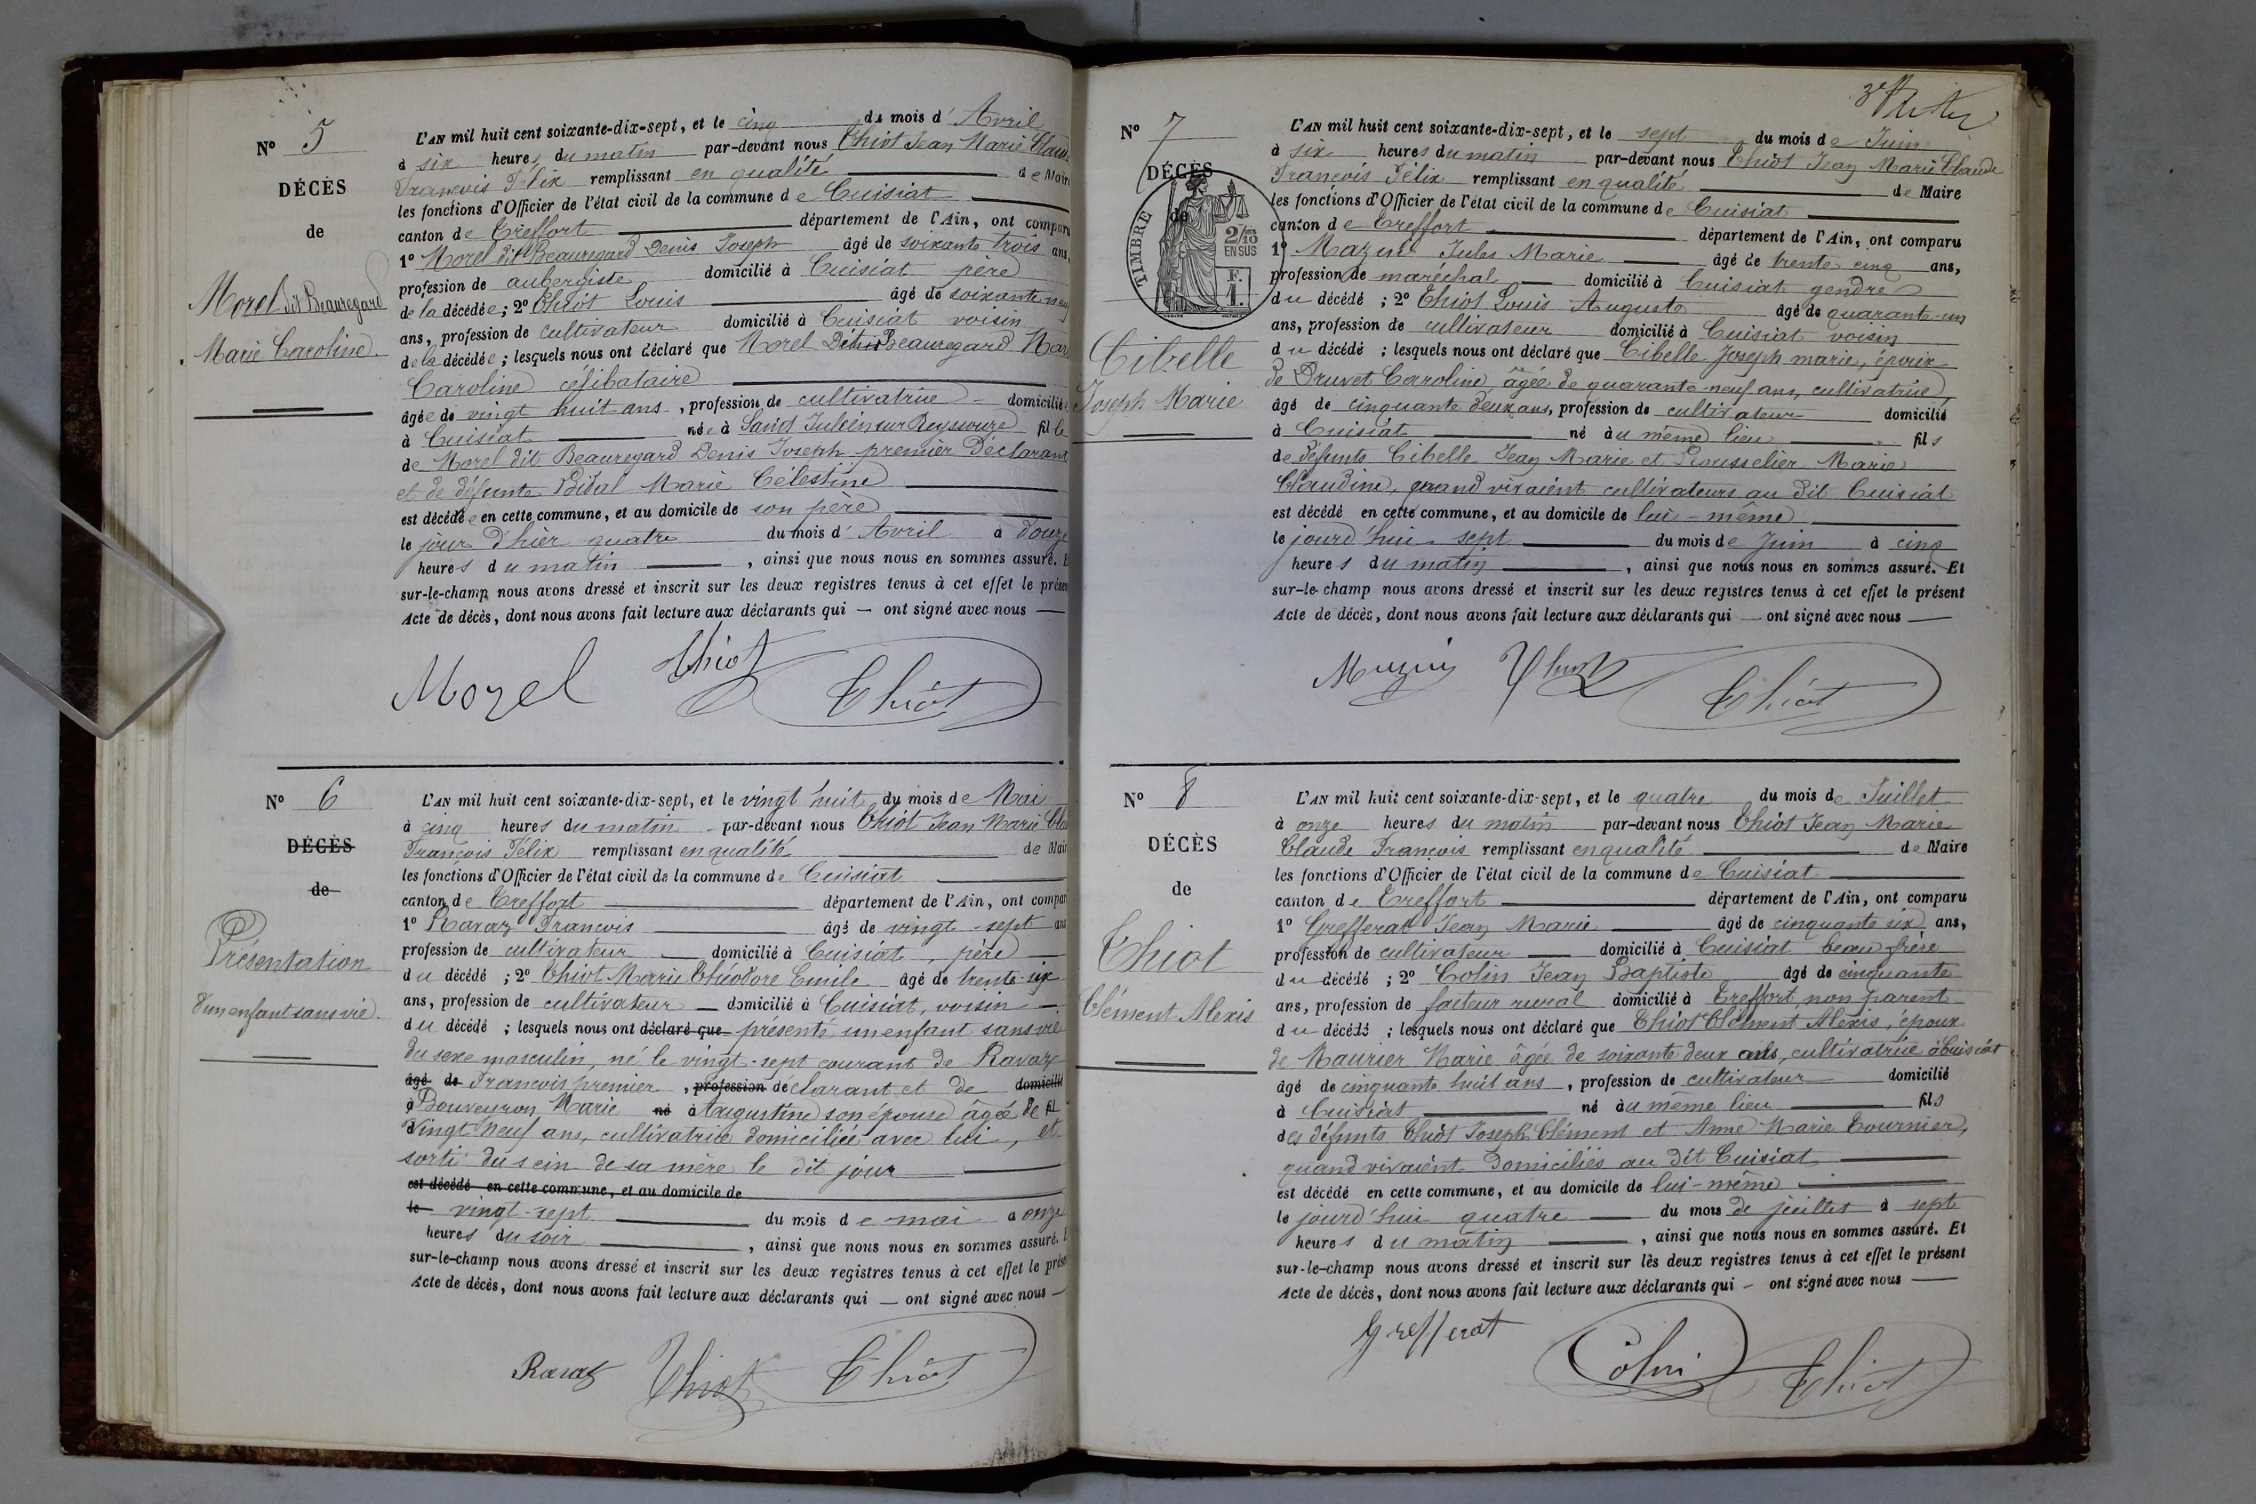 N° 5
DÉCÈS
de
Morel dit Beauregard
Marie Caroline.
L'AN mil huit cent soixante-dix-sept, et le cinq du mois d'Avril
à six heures du matin par-devant nous Thiot Jean Marie Claude
François Félix remplissant en qualité de Maire
les fonctions d'Officier de l'état civil de la commune de Cuisiat
canton de Treffort département de l'Ain, ont comparu
1° Morel dit Beauregard Denis Joseph âgé de soixante trois ans,
profession de aubergiste domicilié à Cuisiat père
de la décédée; 2° Thiot Louis âgé de soixante neuf
ans, profession de cultivateur domicilié à Cuisiat voisin
de la décédée; lesquels nous ont déclaré que Morel Dit Beauregard Mar
Caroline célibataire
âgée de vingt huit ans, profession de cultivatrice domicilié
à Cuisiat née à Saint Julien sur Reyssouze fille
de Morel dit Beauregard Denis Joseph premier Déclarant
et de défunte Vidal Marie Célestine
est décédée en cette commune, et au domicile de son père
le jour d'hier quatre du mois d'Avril à douze
heures du matin, ainsi que nous nous en sommes assuré. E
sur-le-champ nous avons dressé et inscrit sur les deux registres tenus à cet effet le présen
Acte de décès, dont nous avons fait lecture aux déclarants qui — ont signé avec nous —
Morel Thiot Thiot
N° 6
DÉCÈS
de
Présentation
d'un enfant sans vie.
L'AN mil huit cent soixante-dix-sept, et le vingt huit du mois de Mai
à cinq heures du matin par-devant nous Thiot Jean Marie Cla
François Félix remplissant en qualité de Mair
les fonctions d'Officier de l'état civil de la commune de Cuisiat
canton de Treffort département de l'Ain, ont compar
1° Ravaz François âgé de vingt-sept ans
profession de cultivateur domicilié à Cuisiat, père
du décédé; 2° Thiot Marie Théodore Emile âgé de trente-six
ans, profession de cultivateur — domicilié à Cuisiat, voisin —
du décédé; lesquels nous ont déclaré que présenté un enfant sans vie
du sexe masculin, né le vingt-sept courant de Ravaz
âgé de François premier, profession déclarant et de domicilié
à Bouveyron Marie né à Augustine son épouse âgée de fil
vingt neuf ans, cultivatrice domiciliée avec lui, et
sorti du sein de sa mère le dit jour
est décédé en cette commune, et au domicile de
le vingt-sept du mois de mai à onze
heures du soir, ainsi que nous nous en sommes assuré. E
sur-le-champ nous avons dressé et inscrit sur les deux registres tenus à cet effet le prése
Acte de décès, dont nous avons fait lecture aux déclarants qui — ont signé avec nous —
Ravaz Thiot Thiot
N° 7
DÉCÈS
de
TIMBRE
2/10
EN SUS
F.
1.
Cibelle
Joseph Marie
L'AN mil huit cent soixante-dix-sept, et le sept du mois de Juin
à six heures du matin par-devant nous Thiot Jean Marie Claude
François Félix remplissant en qualité de Maire
les fonctions d'Officier de l'état civil de la commune de Cuisiat
canton de Treffort département de l'Ain, ont comparu
1° Mazuir Jules Marie âgé de trente cinq ans,
profession de maréchal domicilié à Cuisiat gendre
du décédé; 2° Thiot Louis Auguste âgé de quarante-un
ans, profession de cultivateur domicilié à Cuisiat voisin
du décédé; lesquels nous ont déclaré que Cibelle Joseph marie, époux
de Druvet Caroline, âgée de quarante-neuf ans, cultivatrice,
âgé de cinquante deux ans, profession de cultivateur domicilié
à Cuisiat né au même lieu fils
de défunts Cibelle Jean Marie et Rousselier Marie
Claudine, quand vivaient cultivateurs au dit Cuisiat
est décédé en cette commune, et au domicile de lui-même
le jourd'hui sept du mois de Juin à cinq
heures du matin, ainsi que nous nous en sommes assuré. Et
sur-le-champ nous avons dressé et inscrit sur les deux registres tenus à cet effet le présent
Acte de décès, dont nous avons fait lecture aux déclarants qui — ont signé avec nous —
Thiot Thiot
N° 8
DÉCÈS
de
Thiot
Clément Alexis
L'AN mil huit cent soixante-dix-sept, et le quatre du mois de Juillet
à onze heures du matin par-devant nous Thiot Jean Marie
Claude François remplissant en qualité de Maire
les fonctions d'Officier de l'état civil de la commune de Cuisiat
canton de Treffort département de l'Ain, ont comparu
1° Grefferat Jean Marie âgé de cinquante six ans,
profession de cultivateur domicilié à Cuisiat beau frère
du décédé; 2° Colin Jean Baptiste âgé de cinquante
ans, profession de facteur rural domicilié à Treffort, non parent
du décédé; lesquels nous ont déclaré que Thiot Clément Alexis, époux
de Maurier Marie âgée de soixante deux ans, cultivatrice à Cuisiat
âgé de cinquante huit ans, profession de cultivateur domicilié
à Cuisiat né au même lieu fils
des défunts Thiot Joseph Clément et Anne Marie Tournier,
quand vivaient Domiciliés au dit Cuisiat
est décédé en cette commune, et au domicile de lui-même
le jourd'hui quatre du mois de juillet à sept
heures du matin, ainsi que nous nous en sommes assuré. Et
sur-le-champ nous avons dressé et inscrit sur les deux registres tenus à cet effet le présent
Acte de décès, dont nous avons fait lecture aux déclarants qui — ont signé avec nous —
Grefferat Colin Thiot